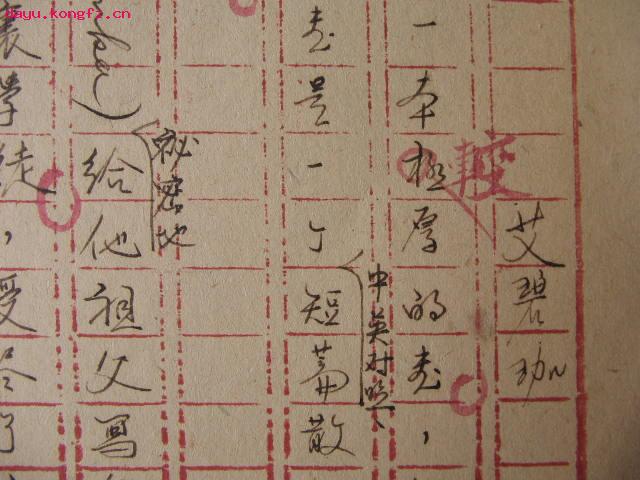 dayu.kongfz.cn
艾碧珈
一本极厚的书，
较
书是一个短篇散
中英对照、
给他祖父写
秘密地
裹学徒，受尽了